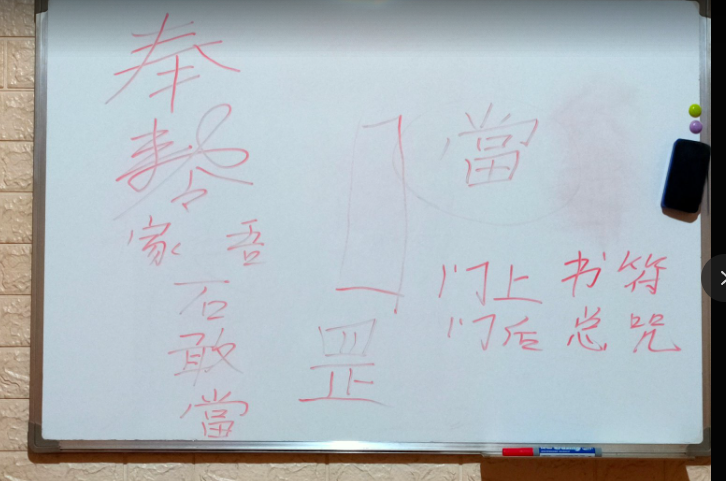 奉
家 吾
石
敢
當
罡
當
门上 书符
门后 总咒